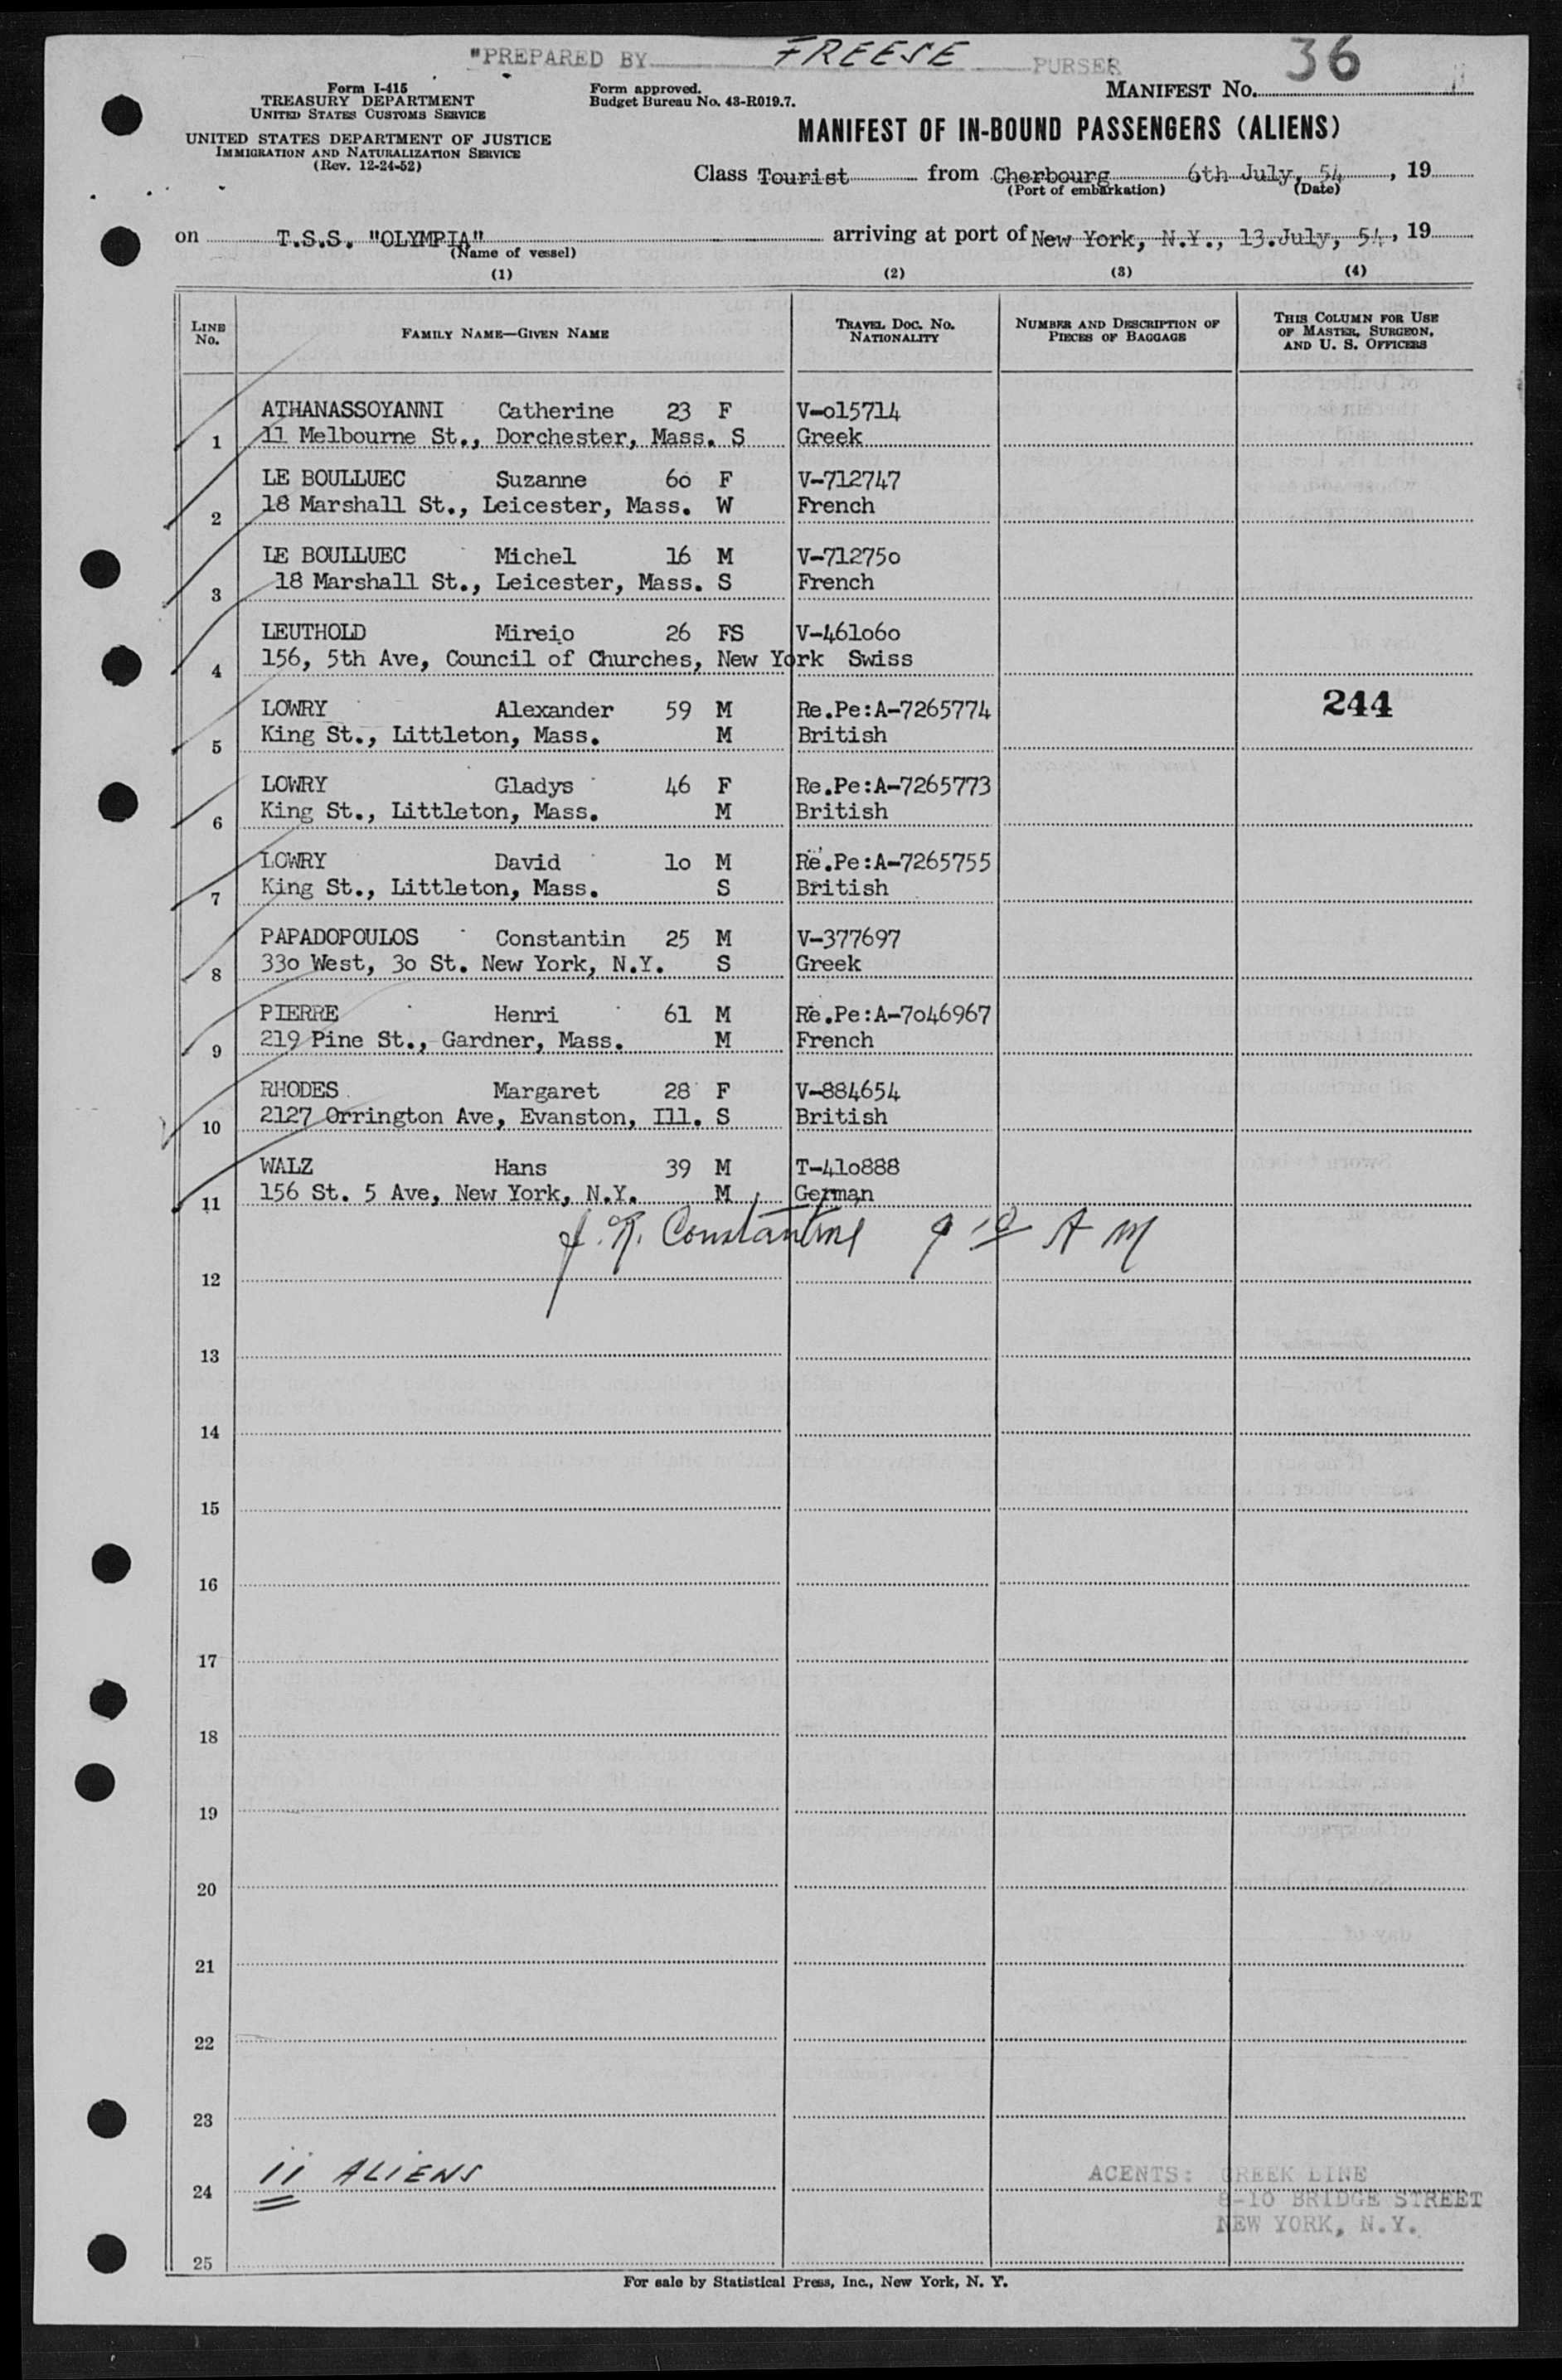 "PREPARED BY FREESE PURSER
36
Form I-415
TREASURY DEPARTMENT
UNITED STATES CUSTOMS SERVICE
UNITED STATES DEPARTMENT OF JUSTICE
IMMIGRATION AND NATURALIZATION SERVICE
(Rev. 12-24-52)
Form approved.
Budget Bureau No. 43-R019.7.
MANIFEST NO.
MANIFEST OF IN-BOUND PASSENGERS (ALIENS)
Class Tourist from Cherbourg 6th July, 54, 19
(Port of embarkation) (Date)
on T.S.S. "OLYMPIA" arriving at port of New York, N.Y., 13.July, 54, 19
(Name of vessel)
(1) (2) (3) (4)
LINE NO. FAMILY NAME—GIVEN NAME TRAVEL DOC. NO. NATIONALITY NUMBER AND DESCRIPTION OF PIECES OF BAGGAGE THIS COLUMN FOR USE OF MASTER, SURGEON, AND U. S. OFFICERS
ATHANASSOYANNI Catherine 23 F V-o15714
1 11 Melbourne St., Dorchester, Mass. S Greek
LE BOULLUEC Suzanne 6o F V-712747
2 18 Marshall St., Leicester, Mass. W French
LE BOULLUEC Michel 16 M V-71275o
3 18 Marshall St., Leicester, Mass. S French
LEUTHOLD Mireio 26 FS V-461o6o
4 156, 5th Ave, Council of Churches, New York Swiss
LOWRY Alexander 59 M Re.Pe:A-7265774 244
5 King St., Littleton, Mass. M British
LOWRY Gladys 46 F Re.Pe:A-7265773
6 King St., Littleton, Mass. M British
LOWRY David 1o M Re.Pe:A-7265755
7 King St., Littleton, Mass. S British
PAPADOPOULOS Constantin 25 M V-377697
8 33o West, 3o St. New York, N.Y. S Greek
PIERRE Henri 61 M Re.Pe:A-7o46967
9 219 Pine St., Gardner, Mass. M French
RHODES Margaret 28 F V-884654
10 2127 Orrington Ave, Evanston, Ill. S British
WALZ Hans 39 M T-41o888
11 156 St. 5 Ave, New York, N.Y. M German
J. R. Constantine 9 10 A M
12
13
14
15
16
17
18
19
20
21
22
23
24 11 ALIENS
AGENTS: GREEK LINE
8-10 BRIDGE STREET
NEW YORK, N.Y.
25
For sale by Statistical Press, Inc., New York, N. Y.